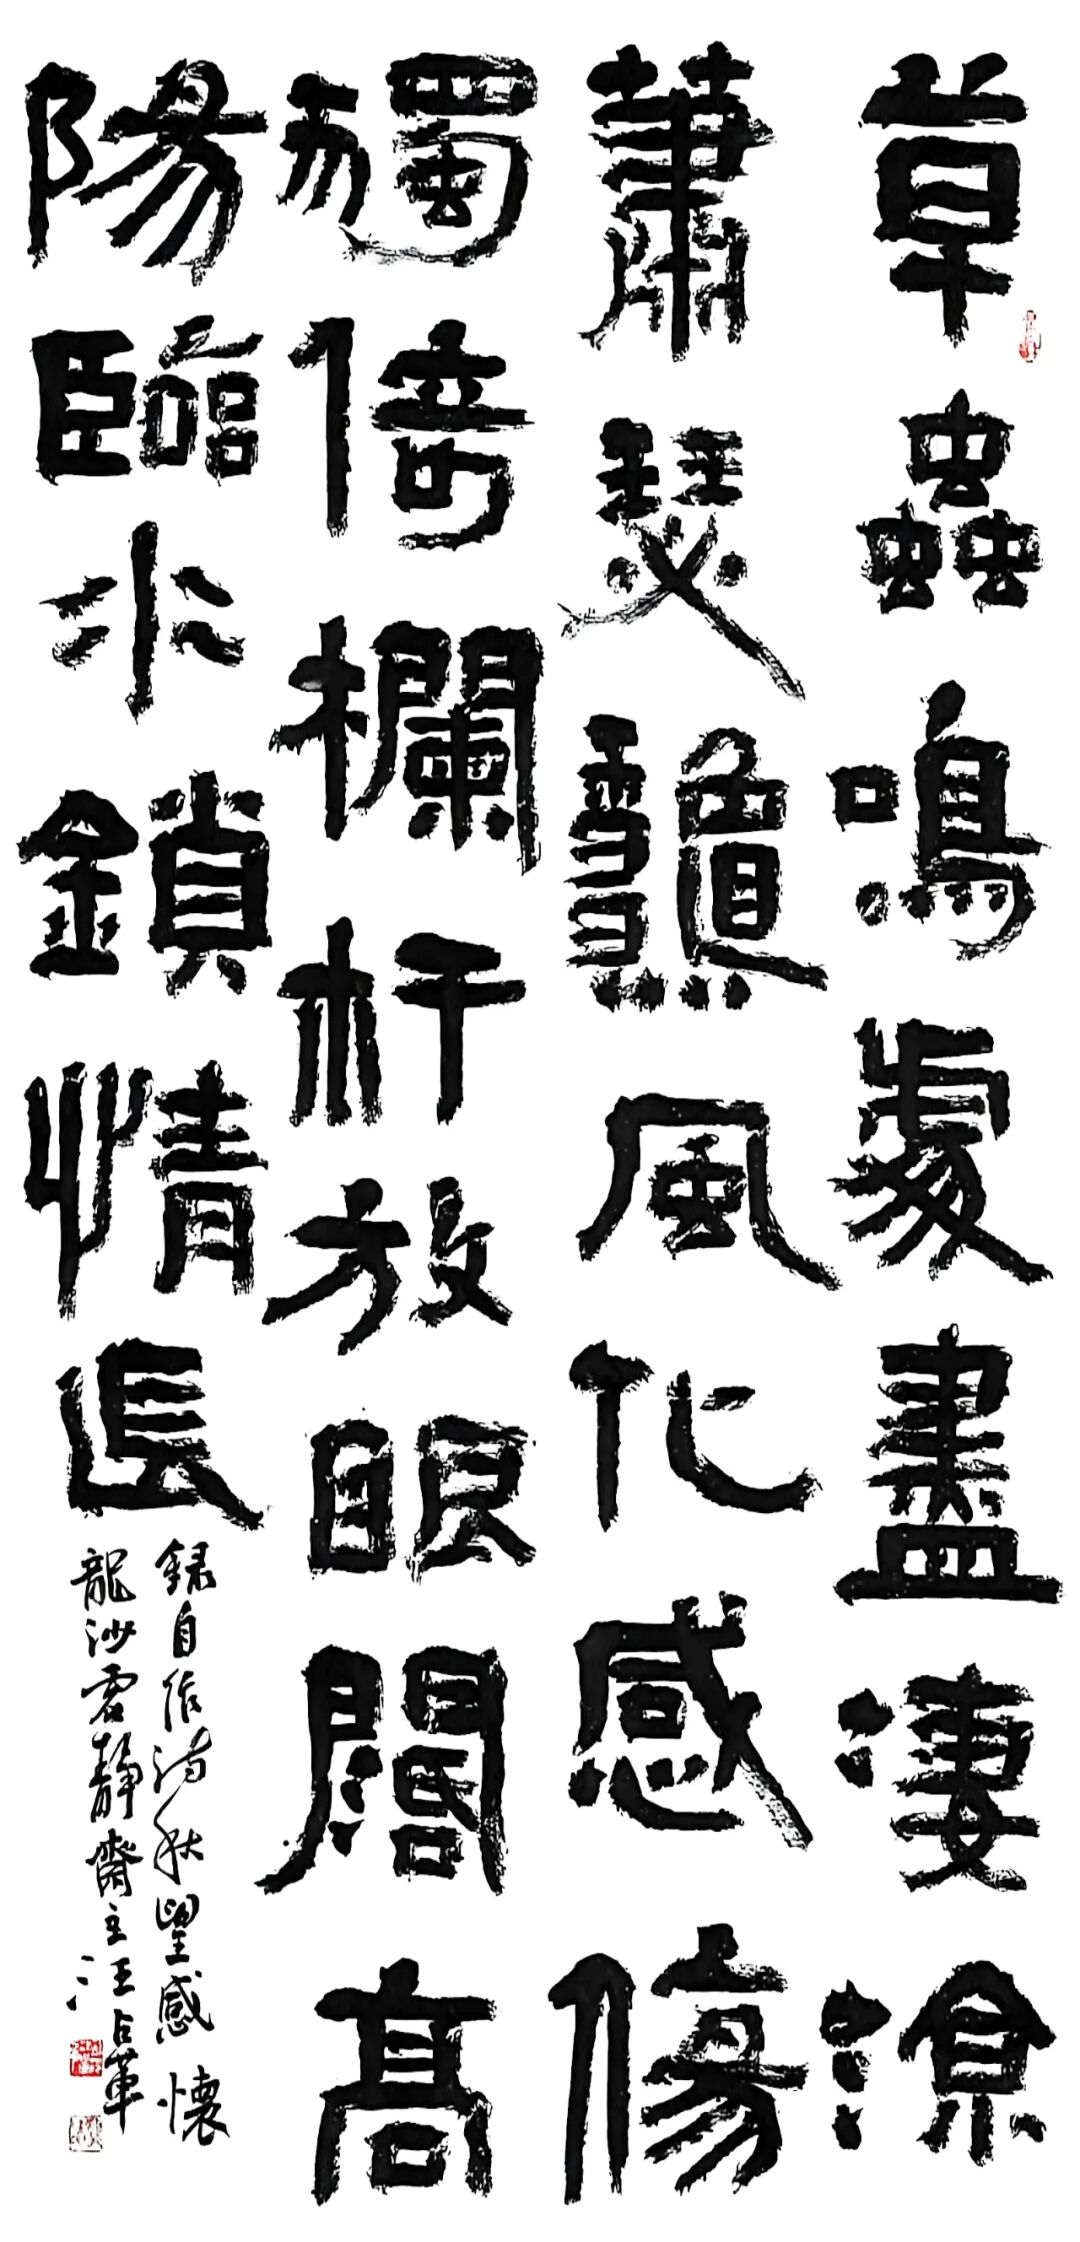 草蟲鳴處盡凄涼
蕭瑟風化感傷
獨倚欄杆放眼闊高
陽臨水鎖情長
錄自作詩秋望感懷
龍沙靜齋主汪占革